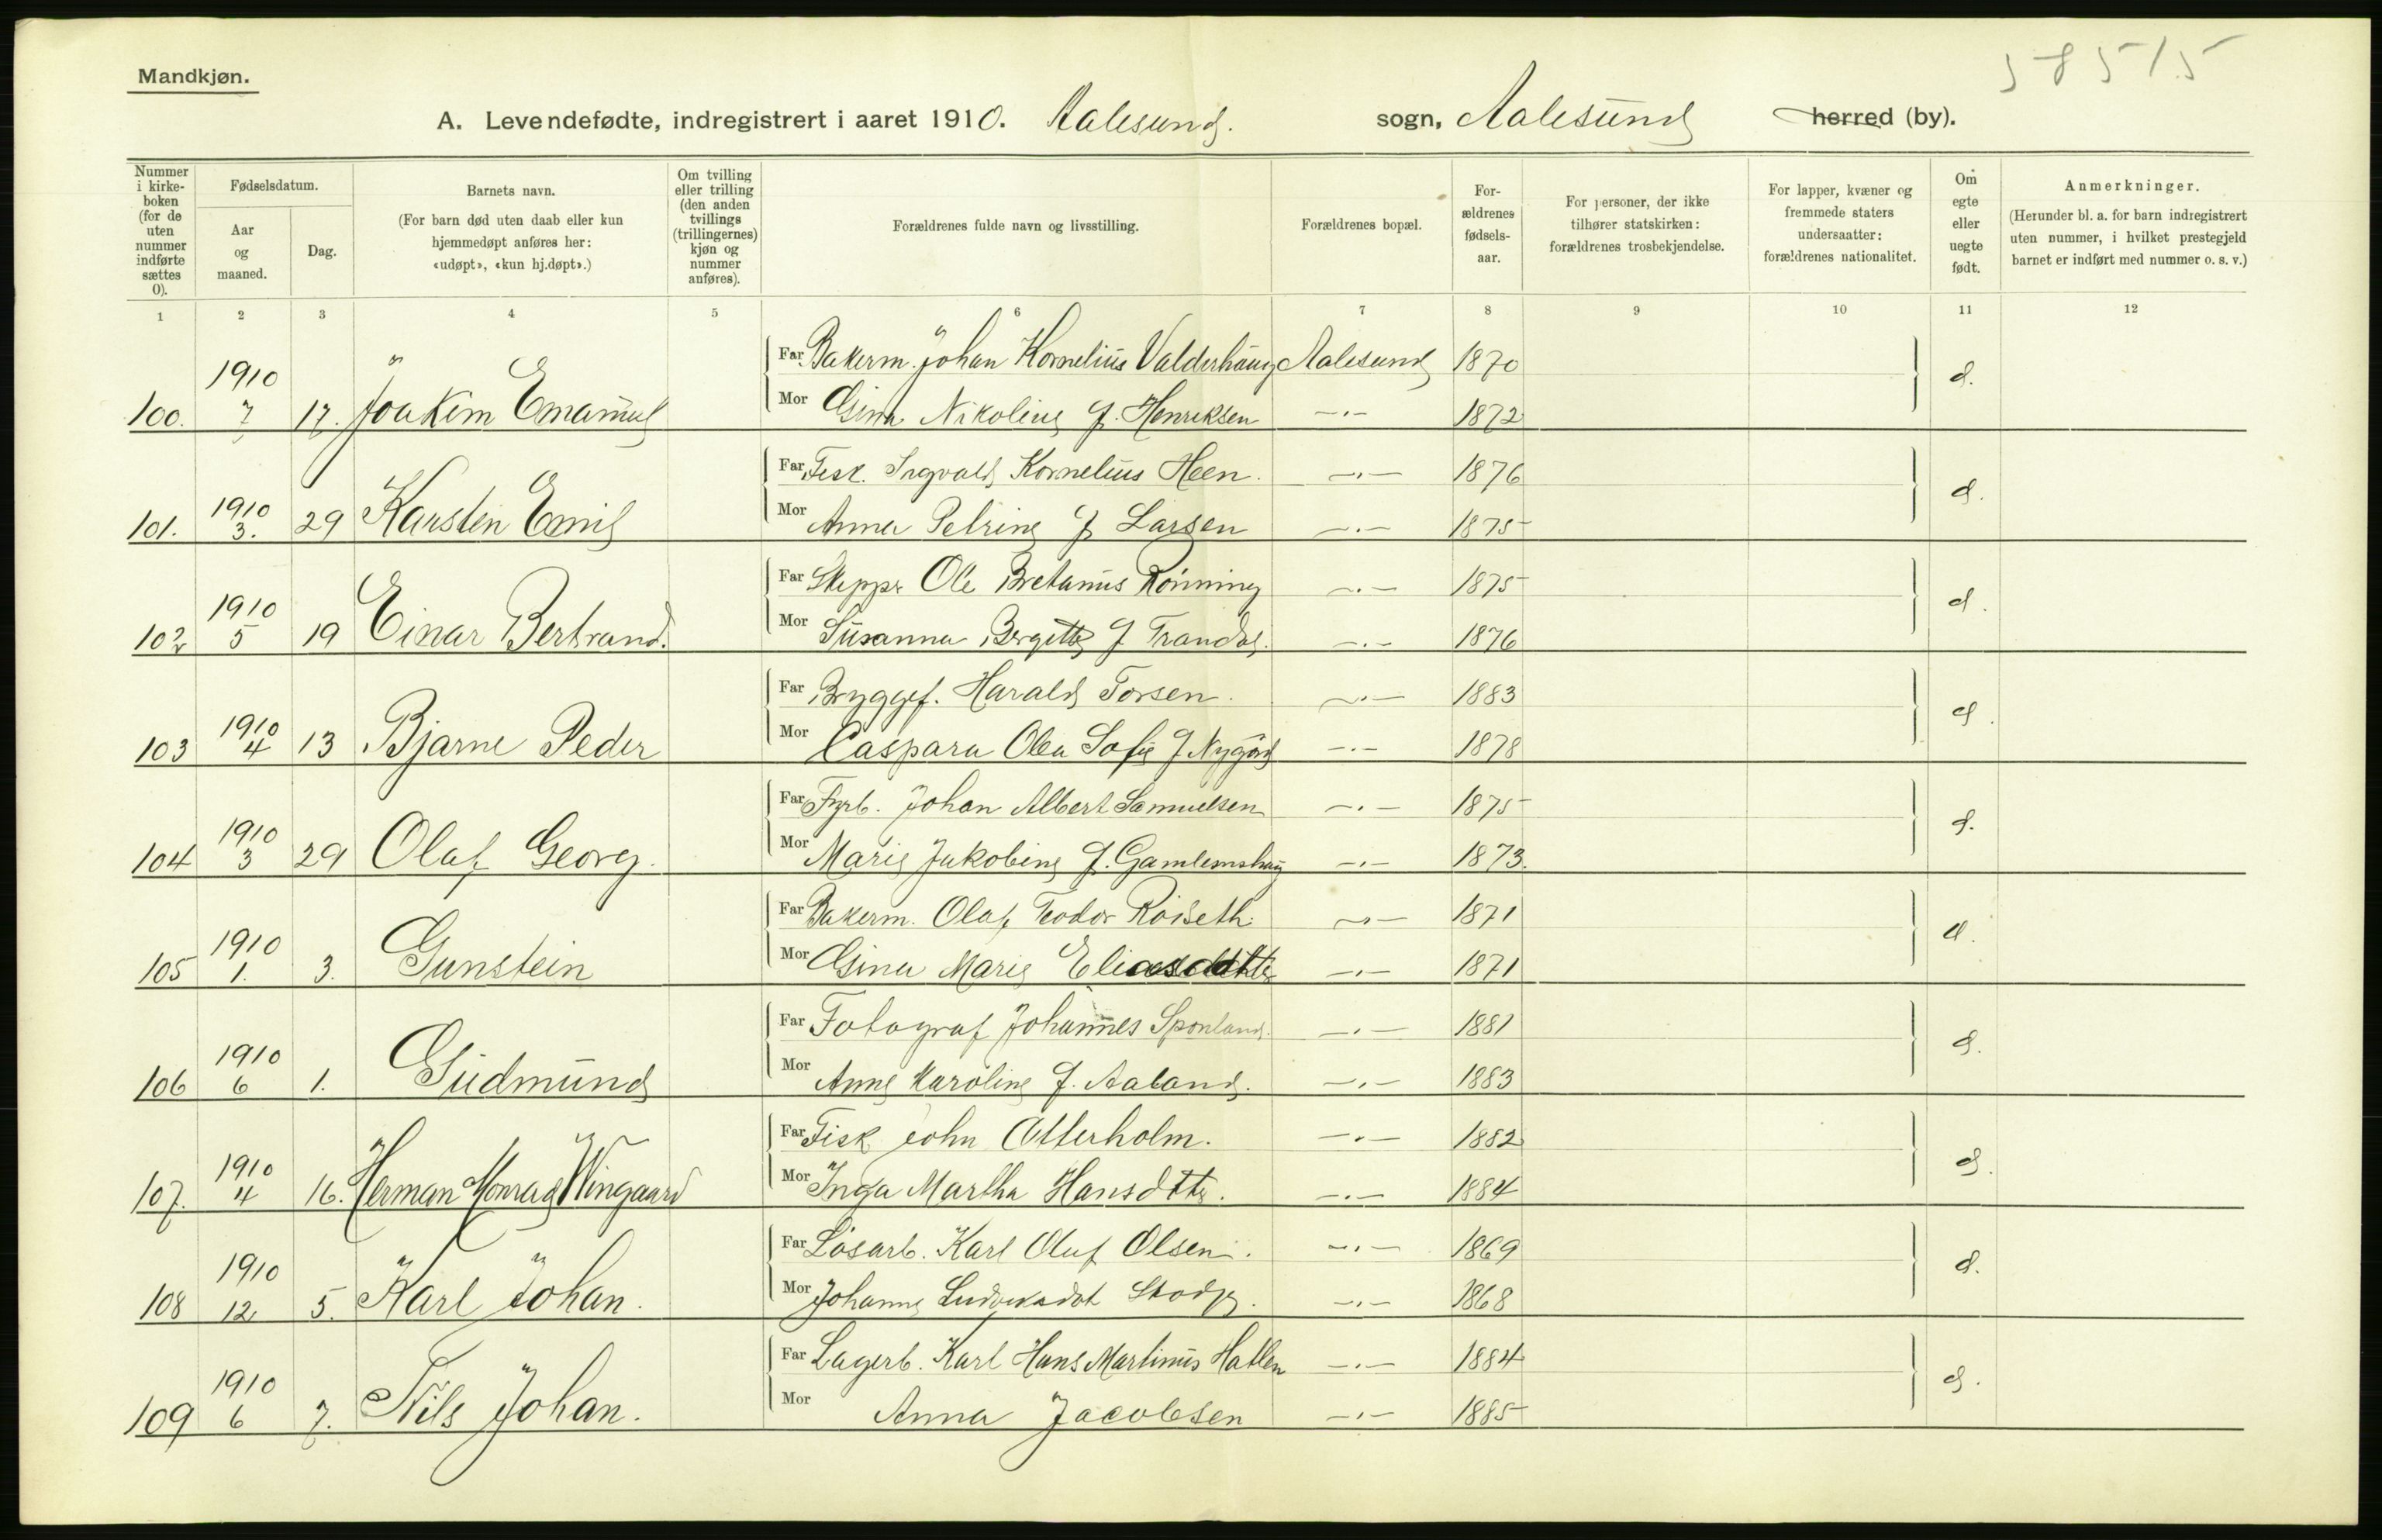 58515
Mandkjøn.
A. Levendefødte, indregistrert i aaret 1910. Aalesund. sogn, Aalesund herred (by).
Nummer i kirke-boken (for de uten nummer indførte sættes 0).
Fødselsdatum.
Aar og maaned.
Dag.
Barnets navn.
(For barn død uten daab eller kun hjemmedøpt anføres her: «udøpt», «kun hj.døpt».)
Om tvilling eller trilling (den anden tvillings (trillingernes) kjøn og nummer anføres).
Forældrenes fulde navn og livsstilling.
Forældrenes bopæl.
For-ældrenes fødsels-aar.
For personer, der ikke tilhører statskirken: forældrenes trosbekjendelse.
For lapper, kvæner og fremmede staters undersaatter: forældrenes nationalitet.
Om egte eller uegte født.
Anmerkninger.
(Herunder bl. a. for barn indregistrert uten nummer, i hvilket prestegjeld barnet er indført med nummer o. s. v.)
1 2 3 4 5 6 7 8 9 10 11 12
Far Bakerm. Johan Kornelius Valderhaug Aalesund 1870
100. 1910 7 17. Joakim Emanuel Mor Gina Nikoline f. Henriksen —„— 1872 e.
Far Fisk. Ingvald Kornelius Heen. —„— 1876
101. 1910 3. 29 Karsten Emil Mor Anna Petrine f Larsen —„— 1875 e.
Far Skippr Ole Bretanus Rönning —„— 1875
102 1910 5 19 Einar Bertrand. Mor Susanna Bergitte f Trandal. —„— 1876 e.
Far Bryggef. Harald Torsen. —„— 1883
103 1910 4 13 Bjarne Peder Mor Caspara Olea Sofie f Nygård —„— 1878 e.
Far Fyrb. Johan Albert Samuelsen —„— 1875
104 1910 3 29 Olaf Georg. Mor Marie Jakobine f. Gamlemshaug —„— 1873. e.
Far Bakerm. Olaf Teodor Röiseth. —„— 1871
105 1910 1. 3. Gunstein Mor Gina Marie Eliasdatter —„— 1871 e.
Far Fotograf Johannes Sponland. —„— 1881
106 1910 6 1. Gudmund Mor Anne Karoline f. Aaland. —„— 1883 e.
Far Fisk John Otterholm. —„— 1882
107. 1910 4 16. Herman Konrad Wingaard Mor Inga Martha Hansdtter. —„— 1884 e.
Far Lösarb. Karl Oluf Olsen. —„— 1869
108 1910 12 5. Karl Johan. Mor Johanne Ludviksdot Skodje. —„— 1868 e.
Far Lagerb. Karl Hans Martinus Hatlen —„— 1884
109 1910 6 7. Nils Johan. Mor Anna Jacobsen —„— 1885 e.